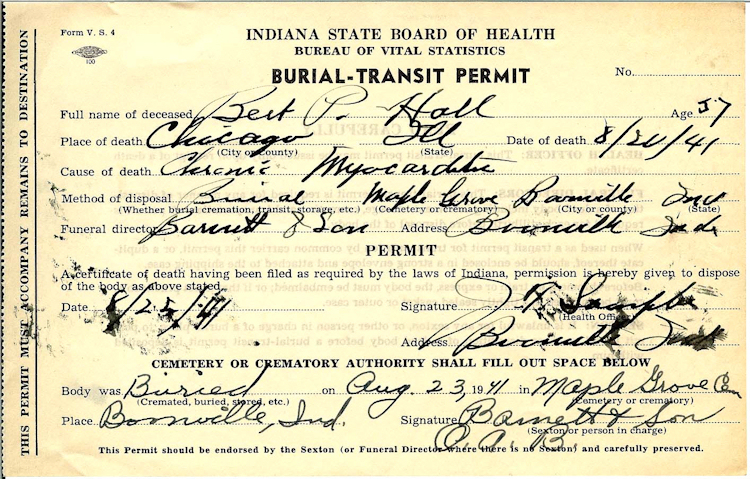 Form V. S. 4
100
INDIANA STATE BOARD OF HEALTH
BUREAU OF VITAL STATISTICS
BURIAL-TRANSIT PERMIT
No.
Full name of deceased Bert P. Hall Age 57
Place of death Chicago Ill Date of death 8/20/41
(City or County) (State)
Cause of death Chronic Myocarditis
Method of disposal Burial Maple Grove Boonville Ind
(Whether burial cremation, transit, storage, etc.) (Cemetery or crematory) (City or county) (State)
Funeral director Barnett & Son Address Boonville Ind.
PERMIT
A certificate of death having been filed as required by the laws of Indiana, permission is hereby given to dispose
of the body as above stated.
Date 8/23/41 Signature Sample
(Health Officer)
Address Boonville Ind
CEMETERY OR CREMATORY AUTHORITY SHALL FILL OUT SPACE BELOW
Body was Buried on Aug. 23, 1941 in Maple Grove Cem
(Cremated, buried, stored, etc.) (Cemetery or crematory)
Place Boonville, Ind. Signature Barnett & Son
(Sexton or person in charge)
O. A. B.
This Permit should be endorsed by the Sexton (or Funeral Director where there is no Sexton) and carefully preserved.
THIS PERMIT MUST ACCOMPANY REMAINS TO DESTINATION